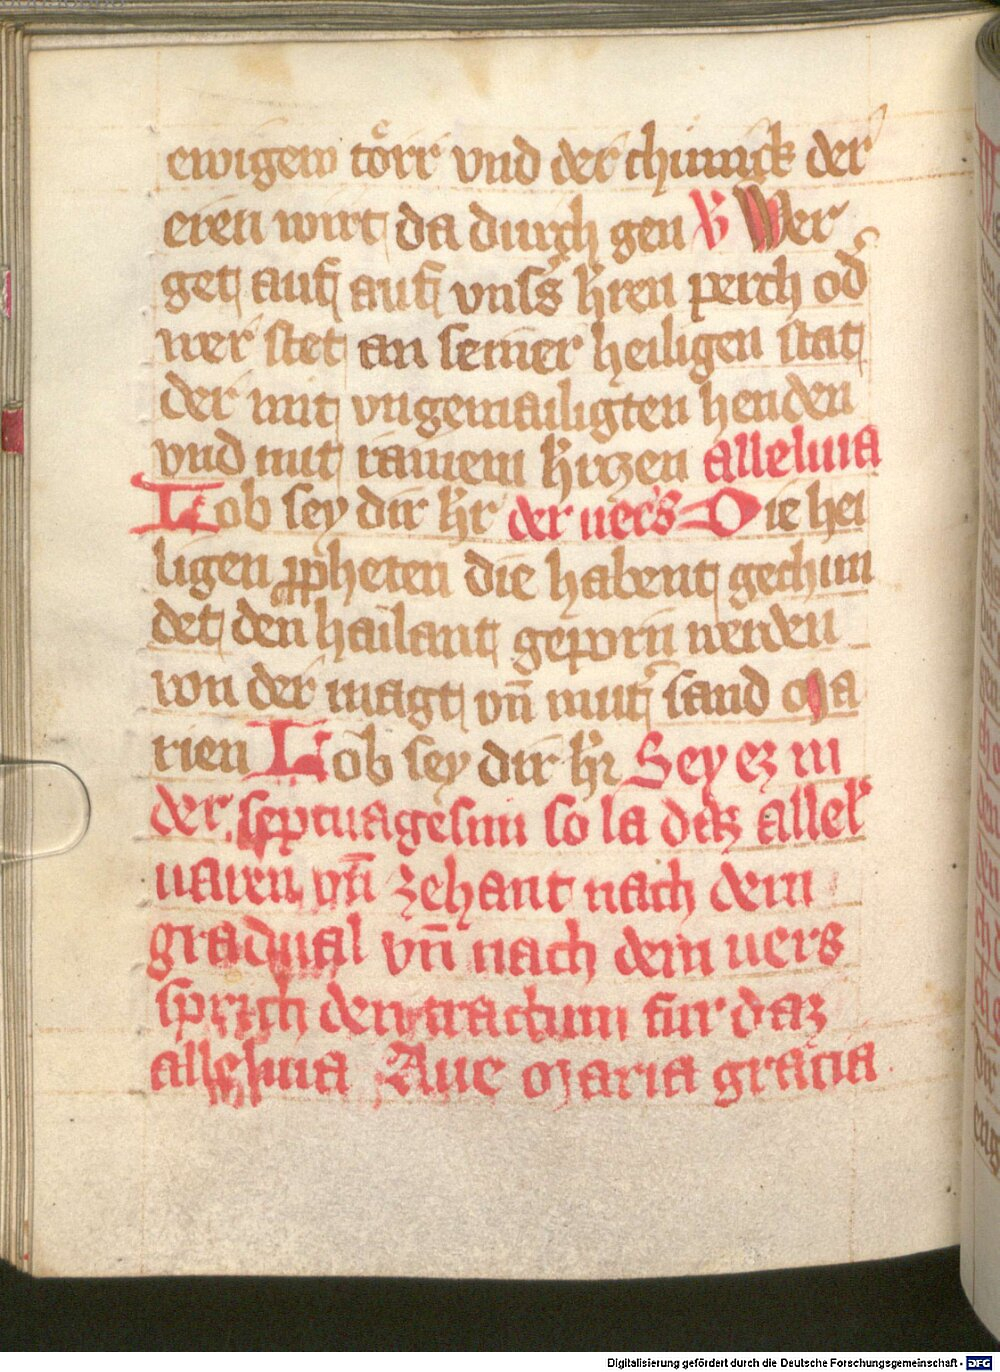 ewigew törr vnd der chunick der
eren wirt da durch gen V Wer
get auf auf vnsers hren perch od
wer stet an seiner heiligen stat
der mit vngemailigten henden
vnd mit rainem hrczen alleluia
Lob sey dir hr der vers Die hei
ligen ppheten die habent gechun
det den hailant geporn werden
von der magt vn̄ mut sand Ma
rien Lob sey dir hr Sey ez in
der septuagesim so la daz allel
uaren vn̄ zehant nach dem
gradual vn̄ nach dem uers
sprich den tractum fur daz
alleluia Aue Maria gracia
Digitalisierung gefördert durch die Deutsche Forschungsgemeinschaft - DFG